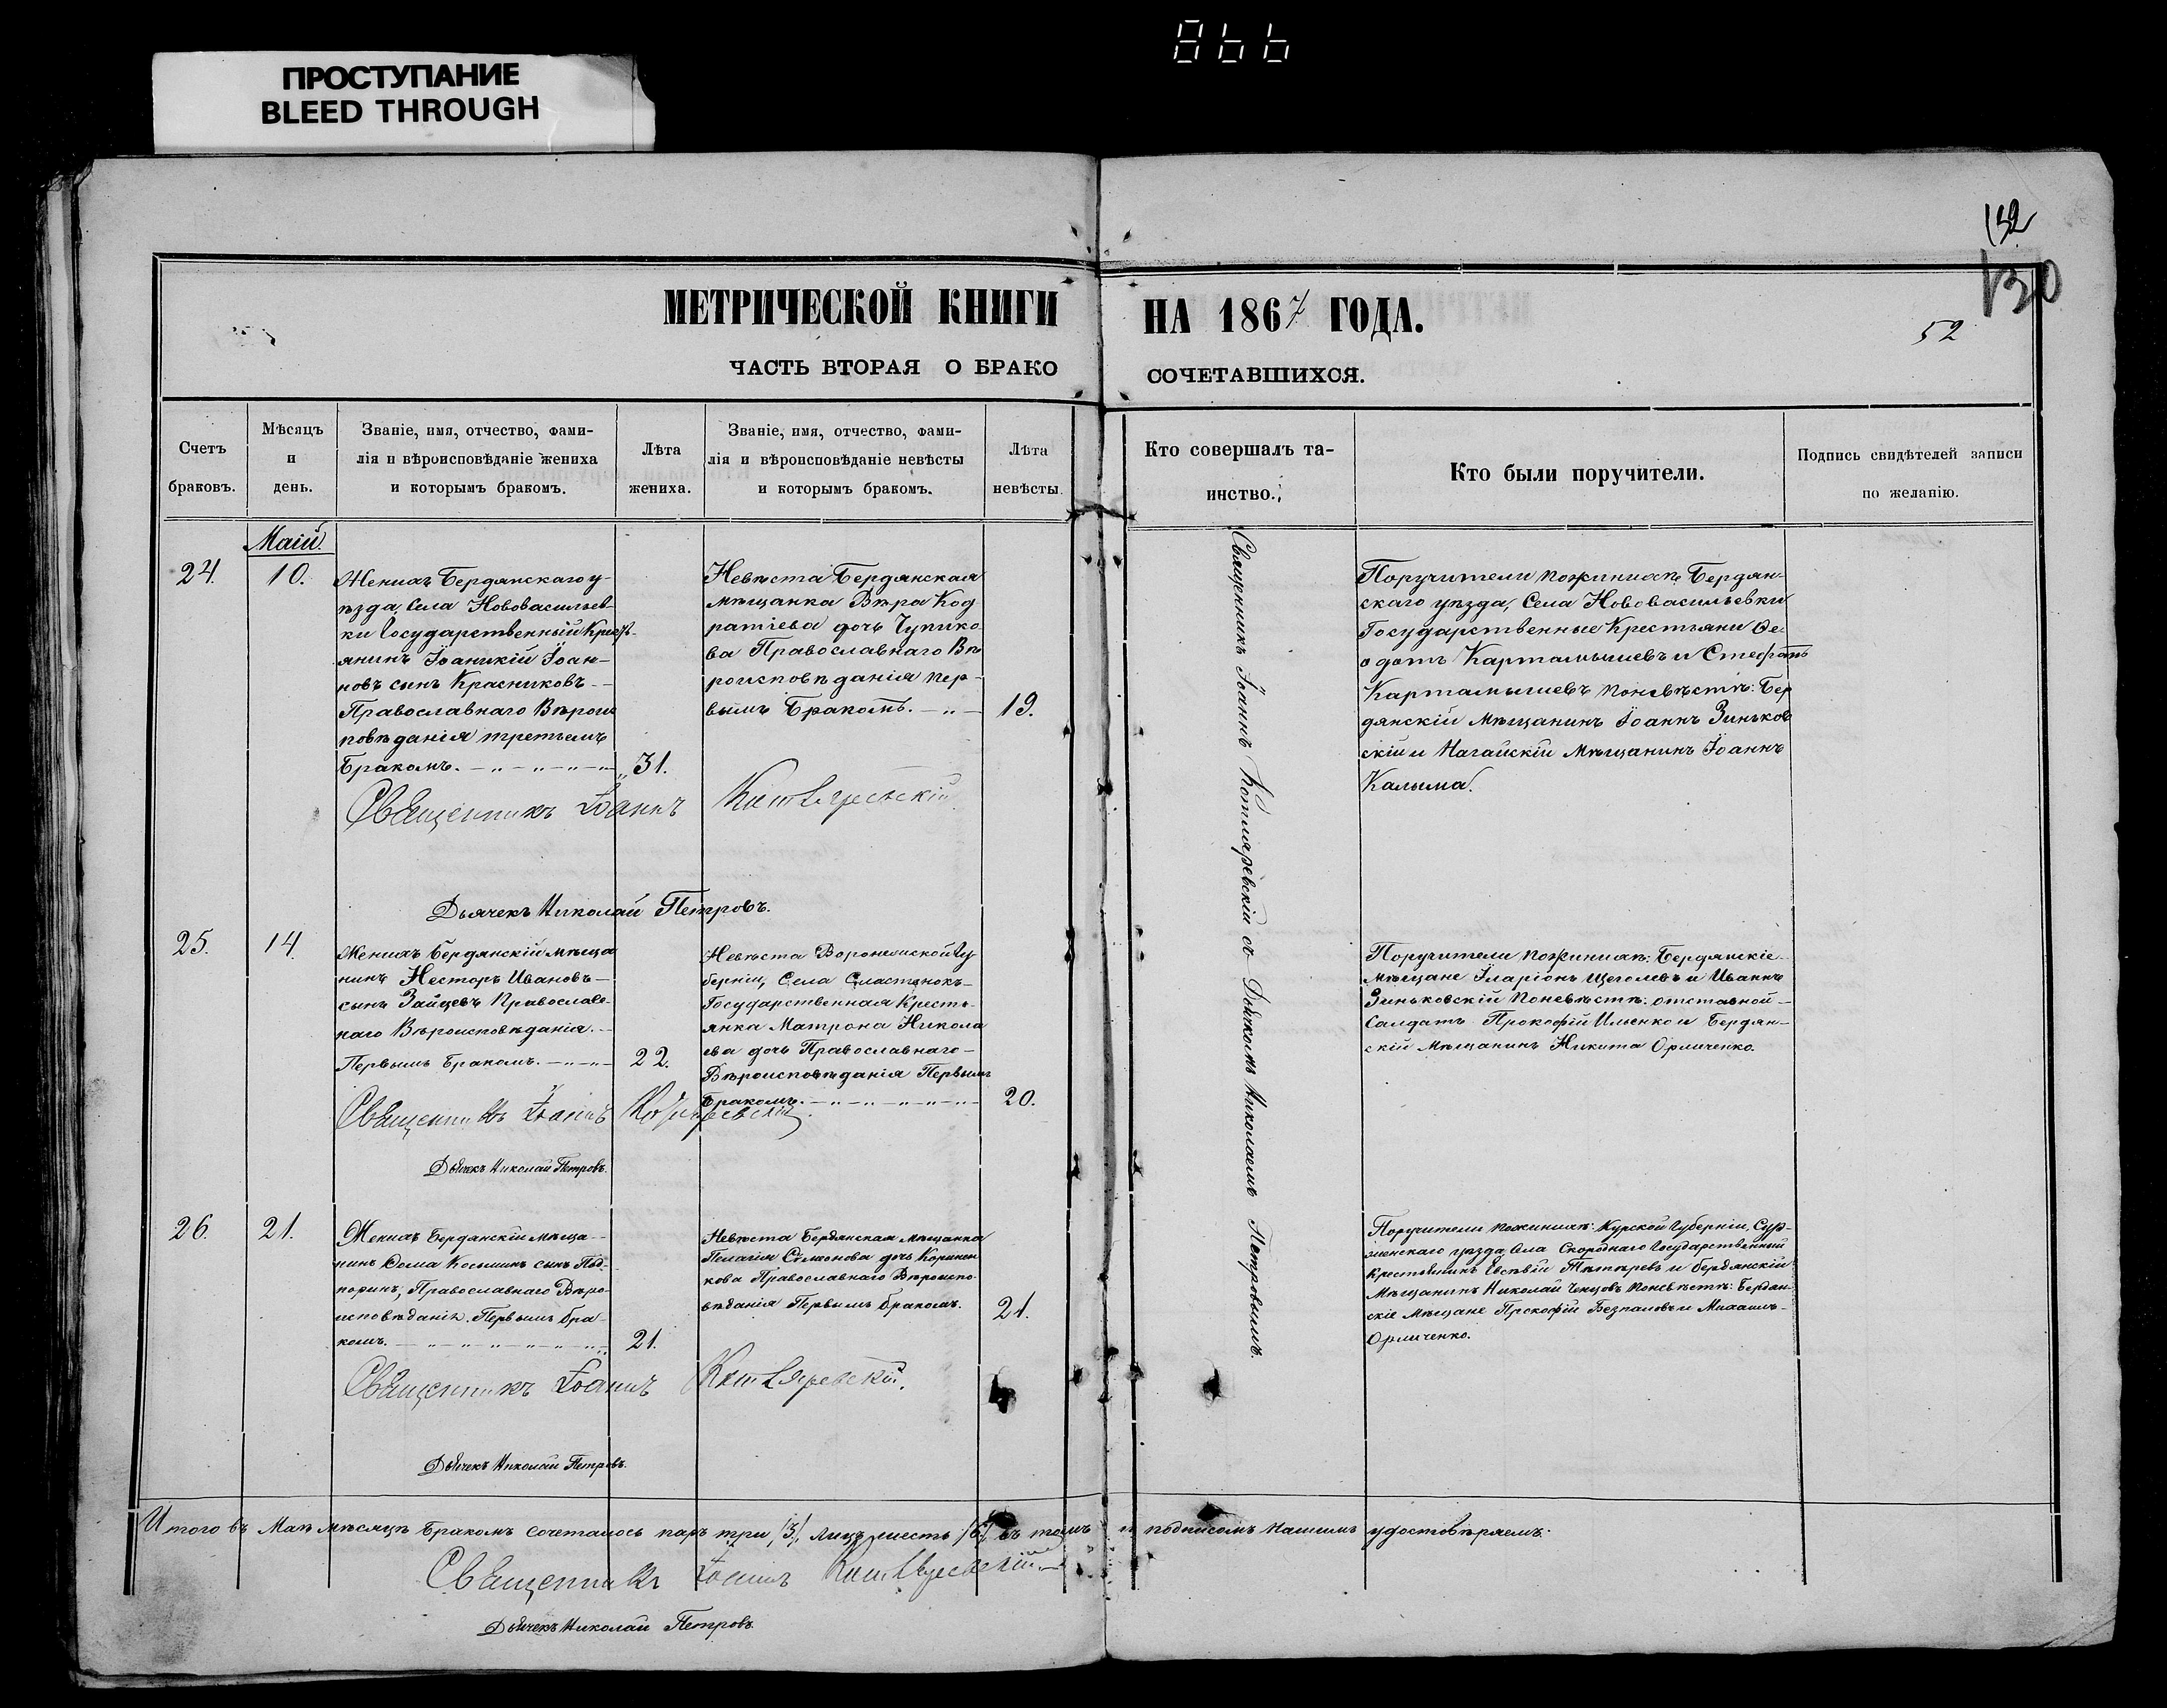 866
ПРОСТУПАНИЕ
BLEED THROUGH
132
130
52
МЕТРИЧЕСКОЙ КНИГИ НА 1867 ГОДА.
ЧАСТЬ ВТОРАЯ О БРАКО СОЧЕТАВШИХСЯ.
Счетъ
браковъ.
Мѣсяцъ
и
день.
Званіе, имя, отчество, фами-
лія и вѣроисповѣданіе жениха
и которымъ бракомъ.
Лѣта
жениха.
Званіе, имя, отчество, фами-
лія и вѣроисповѣданіе невѣсты
и которымъ бракомъ.
Лѣта
невѣсты.
Кто совершалъ та-
инство.
Кто были поручители.
Подпись свидѣтелей записи
по желанію.
Маій.
24.
10.
Женихъ Бердянскаго у-
ѣзда, Села Нововасильев-
ки Государственный Крест-
янинъ Іоаникій Іоан-
новъ сынъ Красниковъ
Православнаго Вѣроис
повѣданія третьемъ
Бракомъ.
31.
Невѣста Бердянская
Мѣщанка Вѣра Код
ратіева дочь Чупико
ва Православнаго Вѣ
роисповѣданія пер-
вымъ Бракомъ.
19.
Священникъ Іоаннъ Котляревскій съ Дьячкомъ Николаемъ Петровымъ.
Поручители пожиниахѣ Бердян-
скаго уѣзда, Села Нововасильевки
Государственные Крестьяни Ѳе-
одотъ Картамышевъ и Стефанъ
Картамышевъ поневѣстѣ: Бер
дянскій Мѣщанинъ Іоаннъ Зиньков
скій и Нагайскій Мѣщанинъ Іоаннъ
Калыма.
Священникъ Іоаннъ Котляревскій
Дьячекъ Николай Петровъ.
25.
14.
Женихъ Бердянскій мѣща
нинъ Несторъ Ивановъ
сынъ Зайцевъ Православ-
наго Вѣроисповѣданія.
Первымъ Бракомъ.
22.
Невѣста Воронежской Гу
берніи, Села Сластенокъ
Государственная Кресть-
янка Матрона Никола
ева дочь Православнаго
Вѣроисповѣданія Первымъ
Бракомъ.
20.
Поручители пожиниахѣ: Бердянскіе
Мѣщане Иларіонъ Щеголевъ и Иваннъ
Зиньковскій поневѣстѣ: отставной
Салдатъ Прокофій Ильенко и Бердян-
скій Мѣщанинъ Никита Орличенко.
Священникъ Іоаннъ Котляревскій
Дьячекъ Николай Петровъ.
26.
21.
Женихъ Бердянскій мѣща-
нинъ Ѳома Косьминъ сынъ Под-
поринъ, Православнаго Вѣро-
исповѣданія. Первымъ бра-
комъ.
21.
Невѣста Бердянская мѣщанка
Пелагія Сѵмонова дочь Коринен
кова Православнаго Вѣроиспо-
вѣданія Первымъ бракомъ.
21.
Поручители пожиниахѣ: Курской Губерніи,
уѣзда Села Скороднаго Государственный
Крестьянинъ Евсѣвій и бердянскій
Мѣщанинъ Николай Ченцовъ поневѣстѣ: Бердян-
скіе Мѣщане Прокофій Безпаловъ и Михаилъ
Орличенко.
Священникъ Іоаннъ Котляревскій.
Дьячекъ Николай Петровъ.
Итого въ Маѣ мѣсяцѣ Бракомъ сочеталось паръ три /3/ Лицъ шесть /6/ въ томъ и подписомъ нашимъ удостовѣряемъ.
Священникъ Іоаннъ Котляревскій
Дьячекъ Николай Петровъ